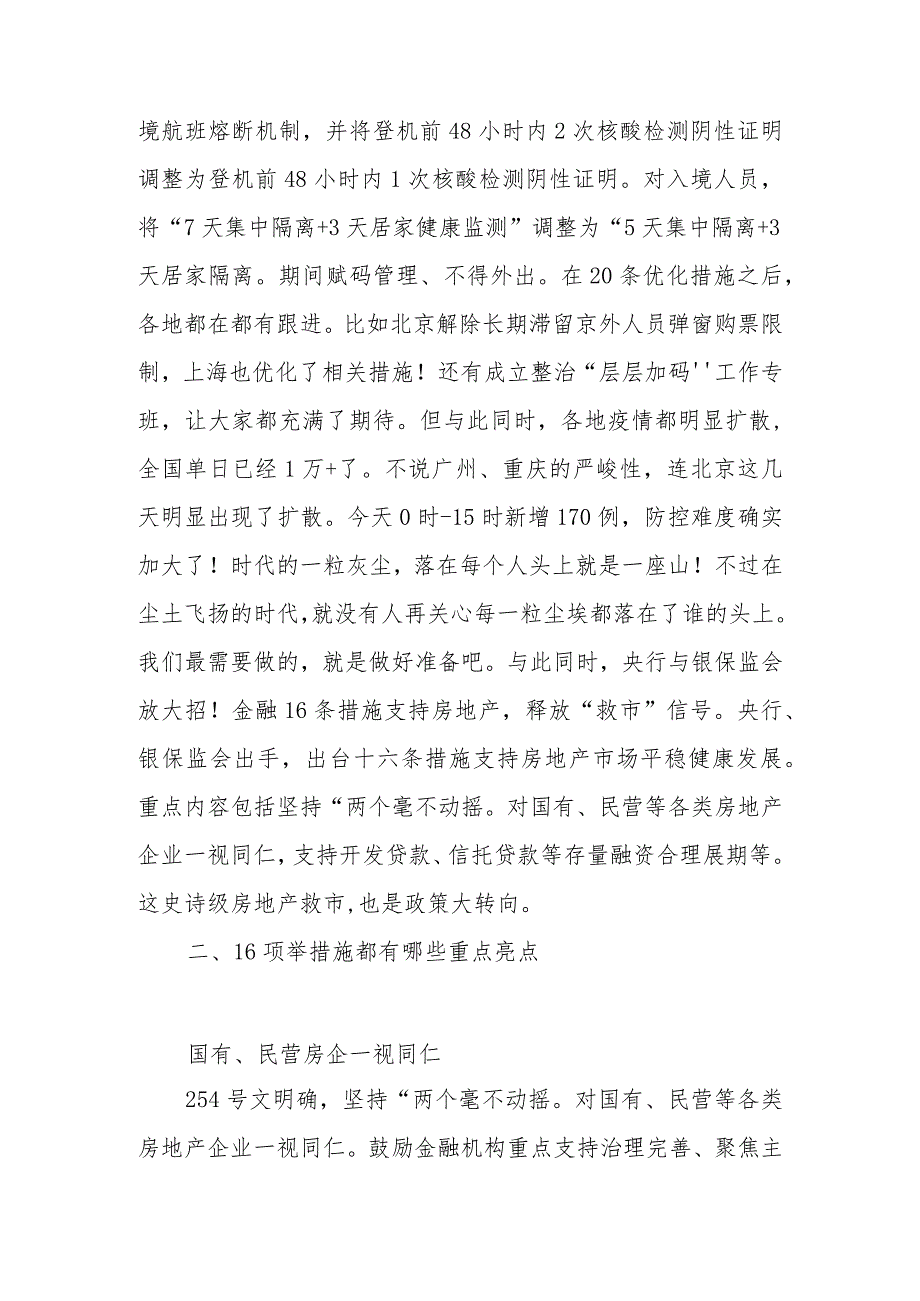 境航班熔断机制，并将登机前 48 小时内 2 次核酸检测阴性证明
调整为登机前 48 小时内 1 次核酸检测阴性证明。对入境人员，
将“7 天集中隔离+3 天居家健康监测”调整为“5 天集中隔离+3
天居家隔离。期间赋码管理、不得外出。在 20 条优化措施之后，
各地都在都有跟进。比如北京解除长期滞留京外人员弹窗购票限
制，上海也优化了相关措施！还有成立整治“层层加码''工作专
班，让大家都充满了期待。但与此同时，各地疫情都明显扩散，
全国单日已经 1 万+了。不说广州、重庆的严峻性，连北京这几
天明显出现了扩散。今天 0 时-15 时新增 170 例，防控难度确实
加大了！时代的一粒灰尘，落在每个人头上就是一座山！不过在
尘土飞扬的时代，就没有人再关心每一粒尘埃都落在了谁的头上。
我们最需要做的，就是做好准备吧。与此同时，央行与银保监会
放大招！金融 16 条措施支持房地产，释放“救市”信号。央行、
银保监会出手，出台十六条措施支持房地产市场平稳健康发展。
重点内容包括坚持“两个毫不动摇。对国有、民营等各类房地产
企业一视同仁，支持开发贷款、信托贷款等存量融资合理展期等。
这史诗级房地产救市,也是政策大转向。
二、16 项举措施都有哪些重点亮点
国有、民营房企一视同仁
254 号文明确，坚持“两个毫不动摇。对国有、民营等各类
房地产企业一视同仁。鼓励金融机构重点支持治理完善、聚焦主